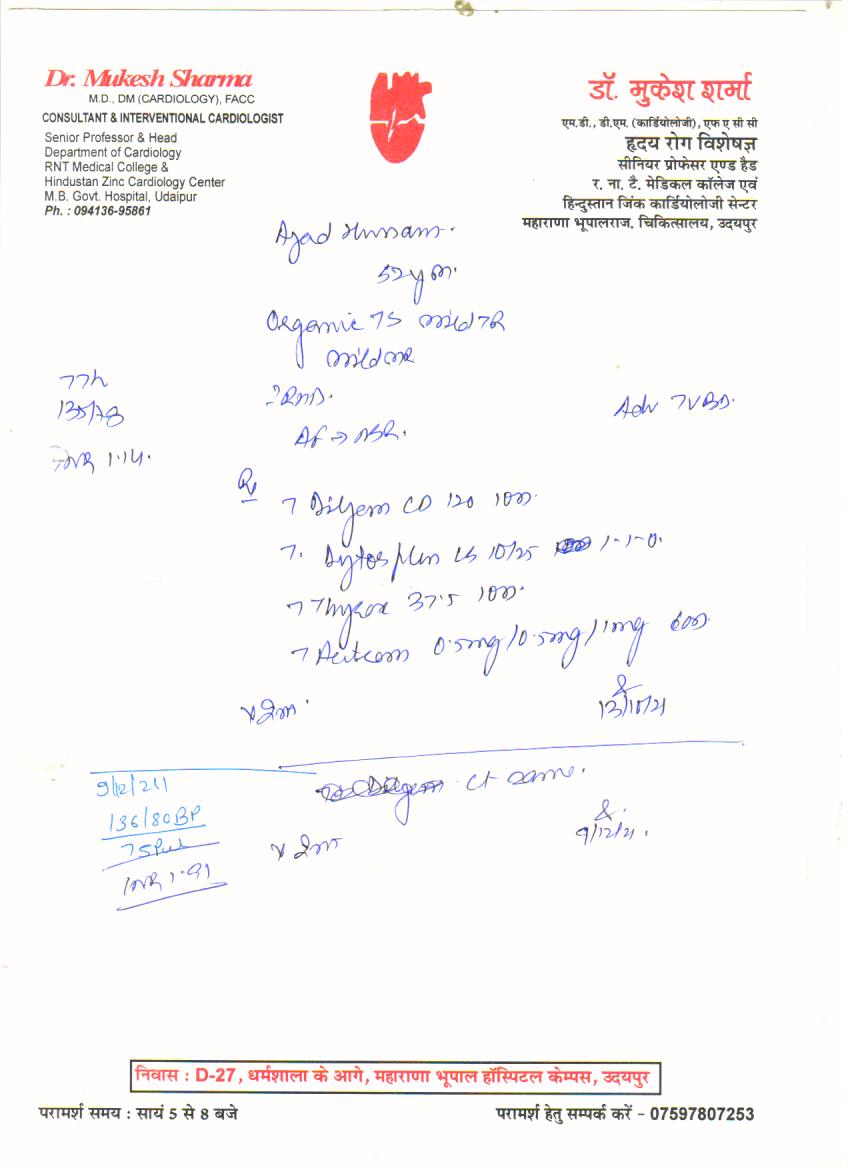 Dr. Mukesh Sharma
M.D., DM (CARDIOLOGY), FACC
CONSULTANT & INTERVENTIONAL CARDIOLOGIST
Senior Professor & Head
Department of Cardiology
RNT Medical College &
Hindustan Zinc Cardiology Center
M.B. Govt. Hospital, Udaipur
Ph. : 094136-95861
डॉ. मुकेश शर्मा
एम.डी., डी.एम. (कार्डियोलोजी), एफ ए सी सी
हृदय रोग विशेषज्ञ
सीनियर प्रोफेसर एण्ड हैड
र. ना. टै. मेडिकल कॉलेज एवं
हिन्दुस्तान जिंक कार्डियोलोजी सेन्टर
महाराणा भूपालराज. चिकित्सालय, उदयपुर
Azad Hussain.
52y m.
Organic TS mild TR
mild MR
?RHD.
AF → NSR.
77/m
135/78
INR 1.14.
Adv TVBD.
Rx
T Dilgem CD 120 1OD.
T. Dytor plus LS 10/25 1-1-0.
T Thyrox 37.5 1OD.
T Acitrom 0.5mg/0.5mg/1mg
x 2m.
13/10/21
9/12/21
136/80 BP
75 Pul
INR 1.91
Ct same.
x 2m
9/12/21.
निवास : D-27, धर्मशाला के आगे, महाराणा भूपाल हॉस्पिटल केम्पस, उदयपुर
परामर्श समय : सायं 5 से 8 बजे
परामर्श हेतु सम्पर्क करें - 07597807253